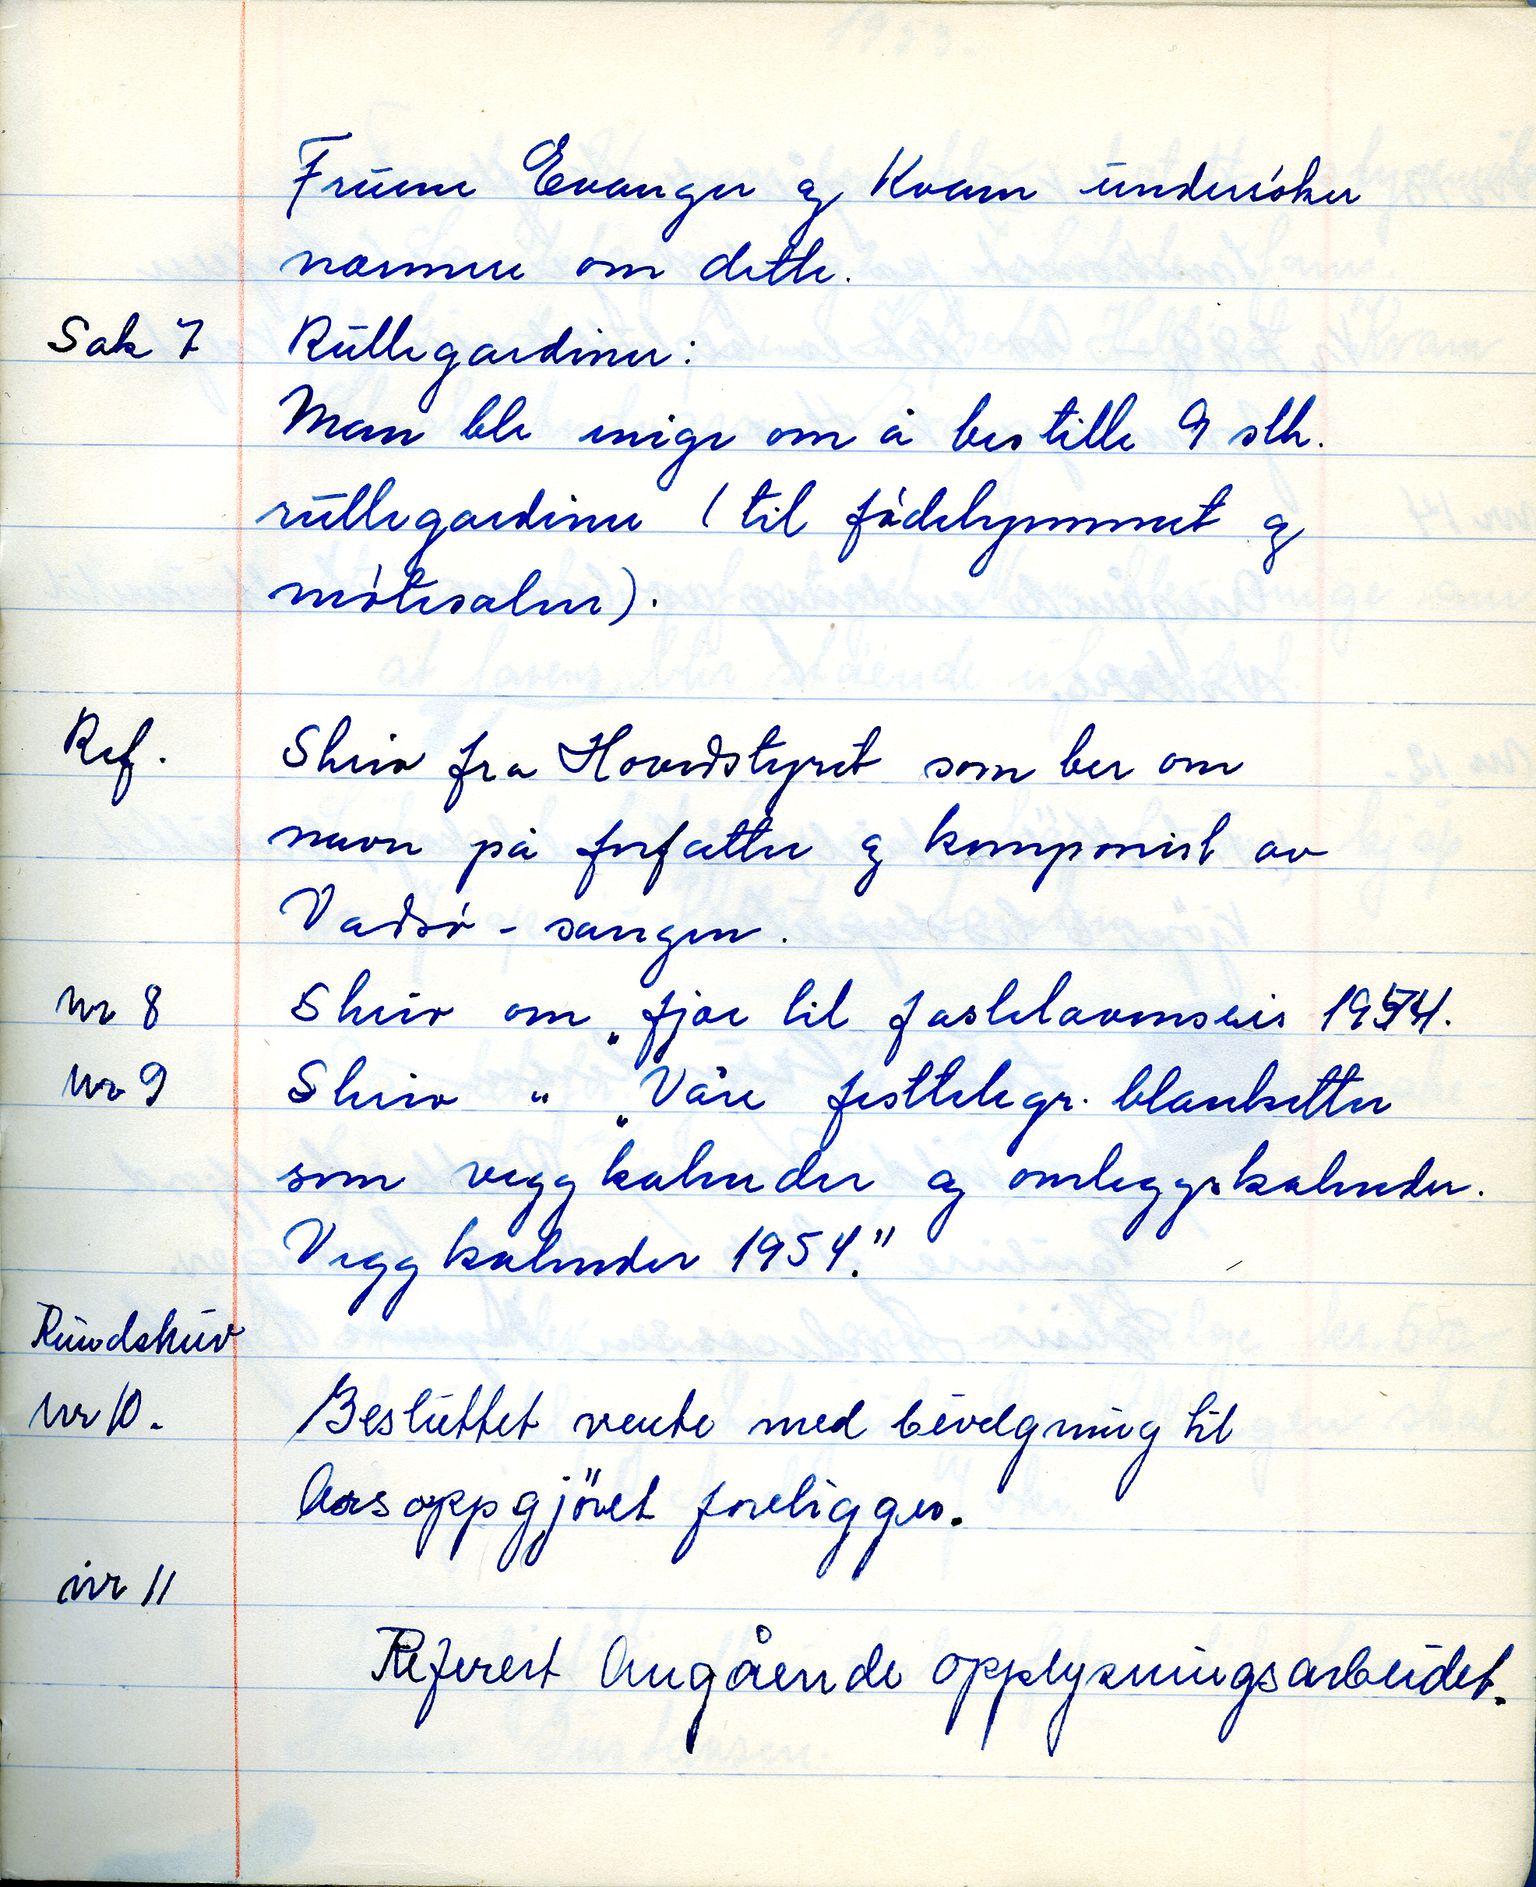 Fruene Evanger og Kvam undersøker
nærmere om dette.
Sak 7 Rullegardiner:
Man ble enige om å bestille 9 stk.
rullegardiner (til fødehjemmet og
møtesalen).
Ref. Skriv fra Hovedstyret som ber om
navn på forfatter og komponist av
Vadsø-sangen.
Nr 8 Skriv om „fjær til fastelavensris 1954.
Nr 9 Skriv " „Våre festtelegr. blanketter
som veggkalender og omleggskalender.
Veggkalender 1954."
Rundskriv
Nr 10. Besluttet vente med bevilgning til
Årsoppgjöret foreligger.
Nr 11
Referert Angående opplysningsarbeidet.